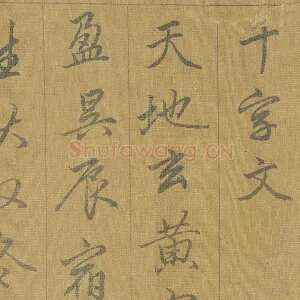 千字文
天地玄黃
盈昃辰宿
Shufawang.CN